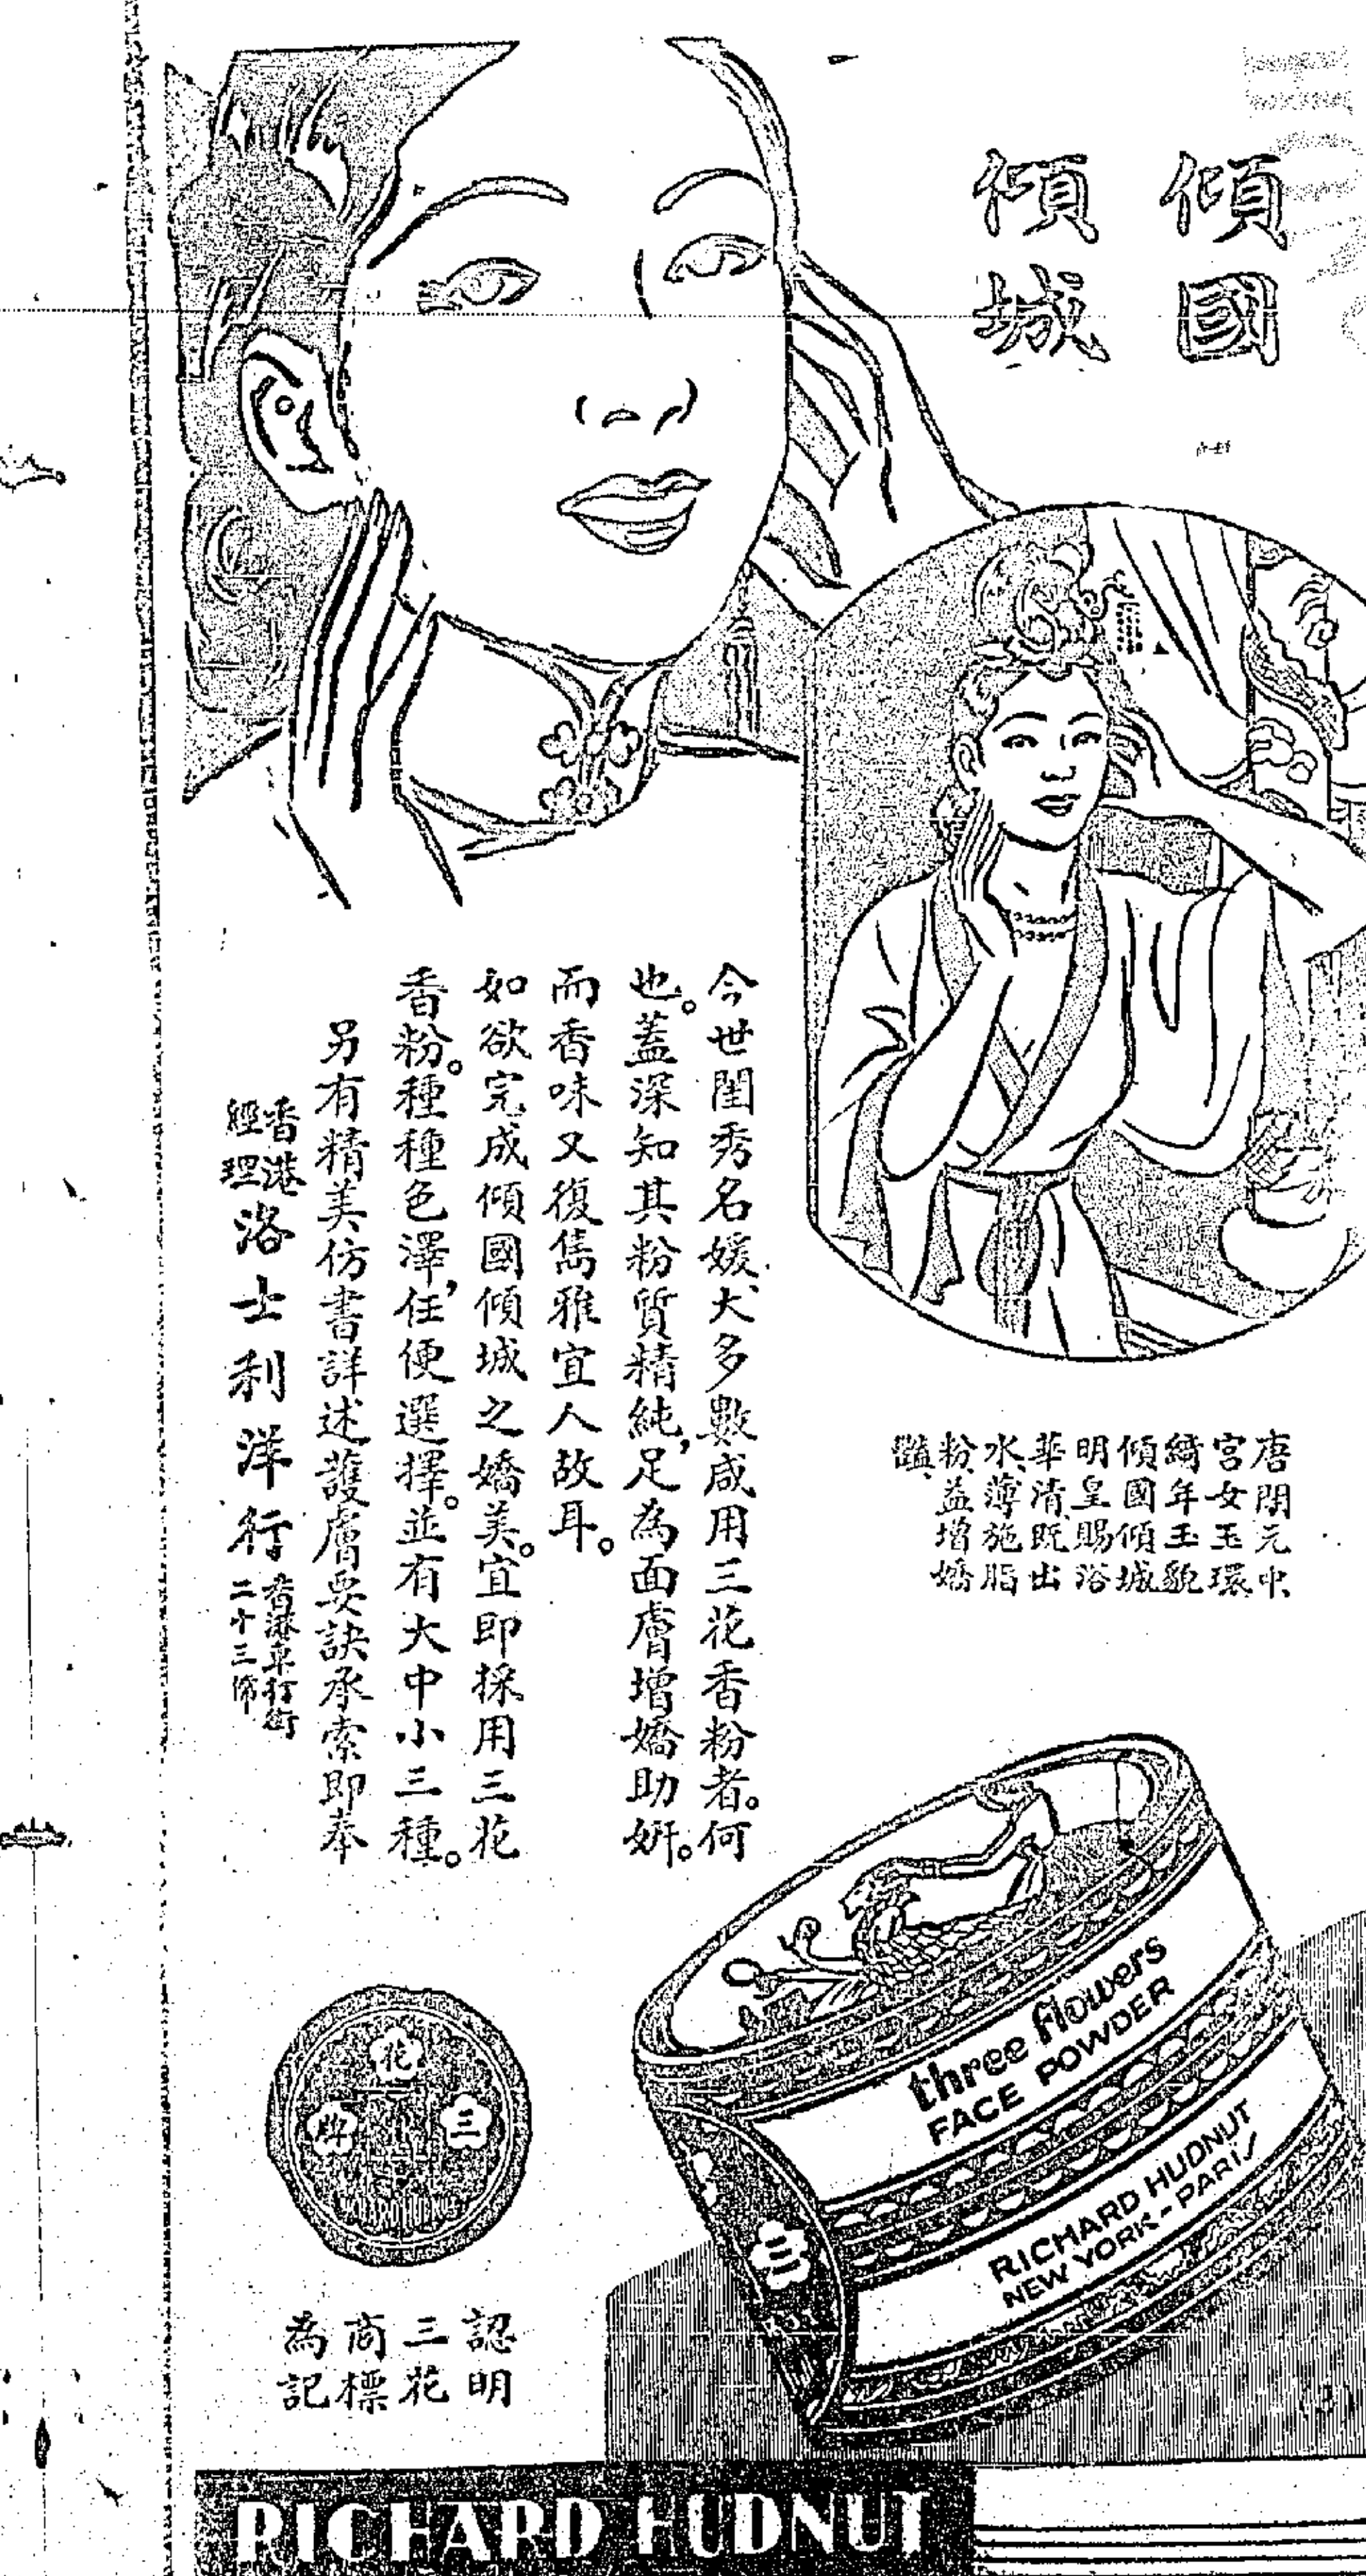 傾國
傾城
唐開元中
宮女玉環
綺年玉貌
傾國傾城
明皇賜浴
華清既出
水薄施脂
粉益增嬌
豔
今世閨秀名媛、大多數咸用三花香粉者。何
也。蓋深知其粉質精純,足為面膚增嬌助妍。
而香味又復雋雅宜人故耳。
如欲完成傾國傾城之嬌美。宜即採用三花
香粉。種種色澤,任便選擇。並有大中小三種。
另有精美仿書詳述護膚要訣承索即奉
香港
經理
洛士利洋行
香港車打街
二十三號
three flowers
FACE POWDER
RICHARD HUDNUT
NEW YORK - PARIS
三
三花牌
認明
三花
商標
為記
RICHARD HUDNUT